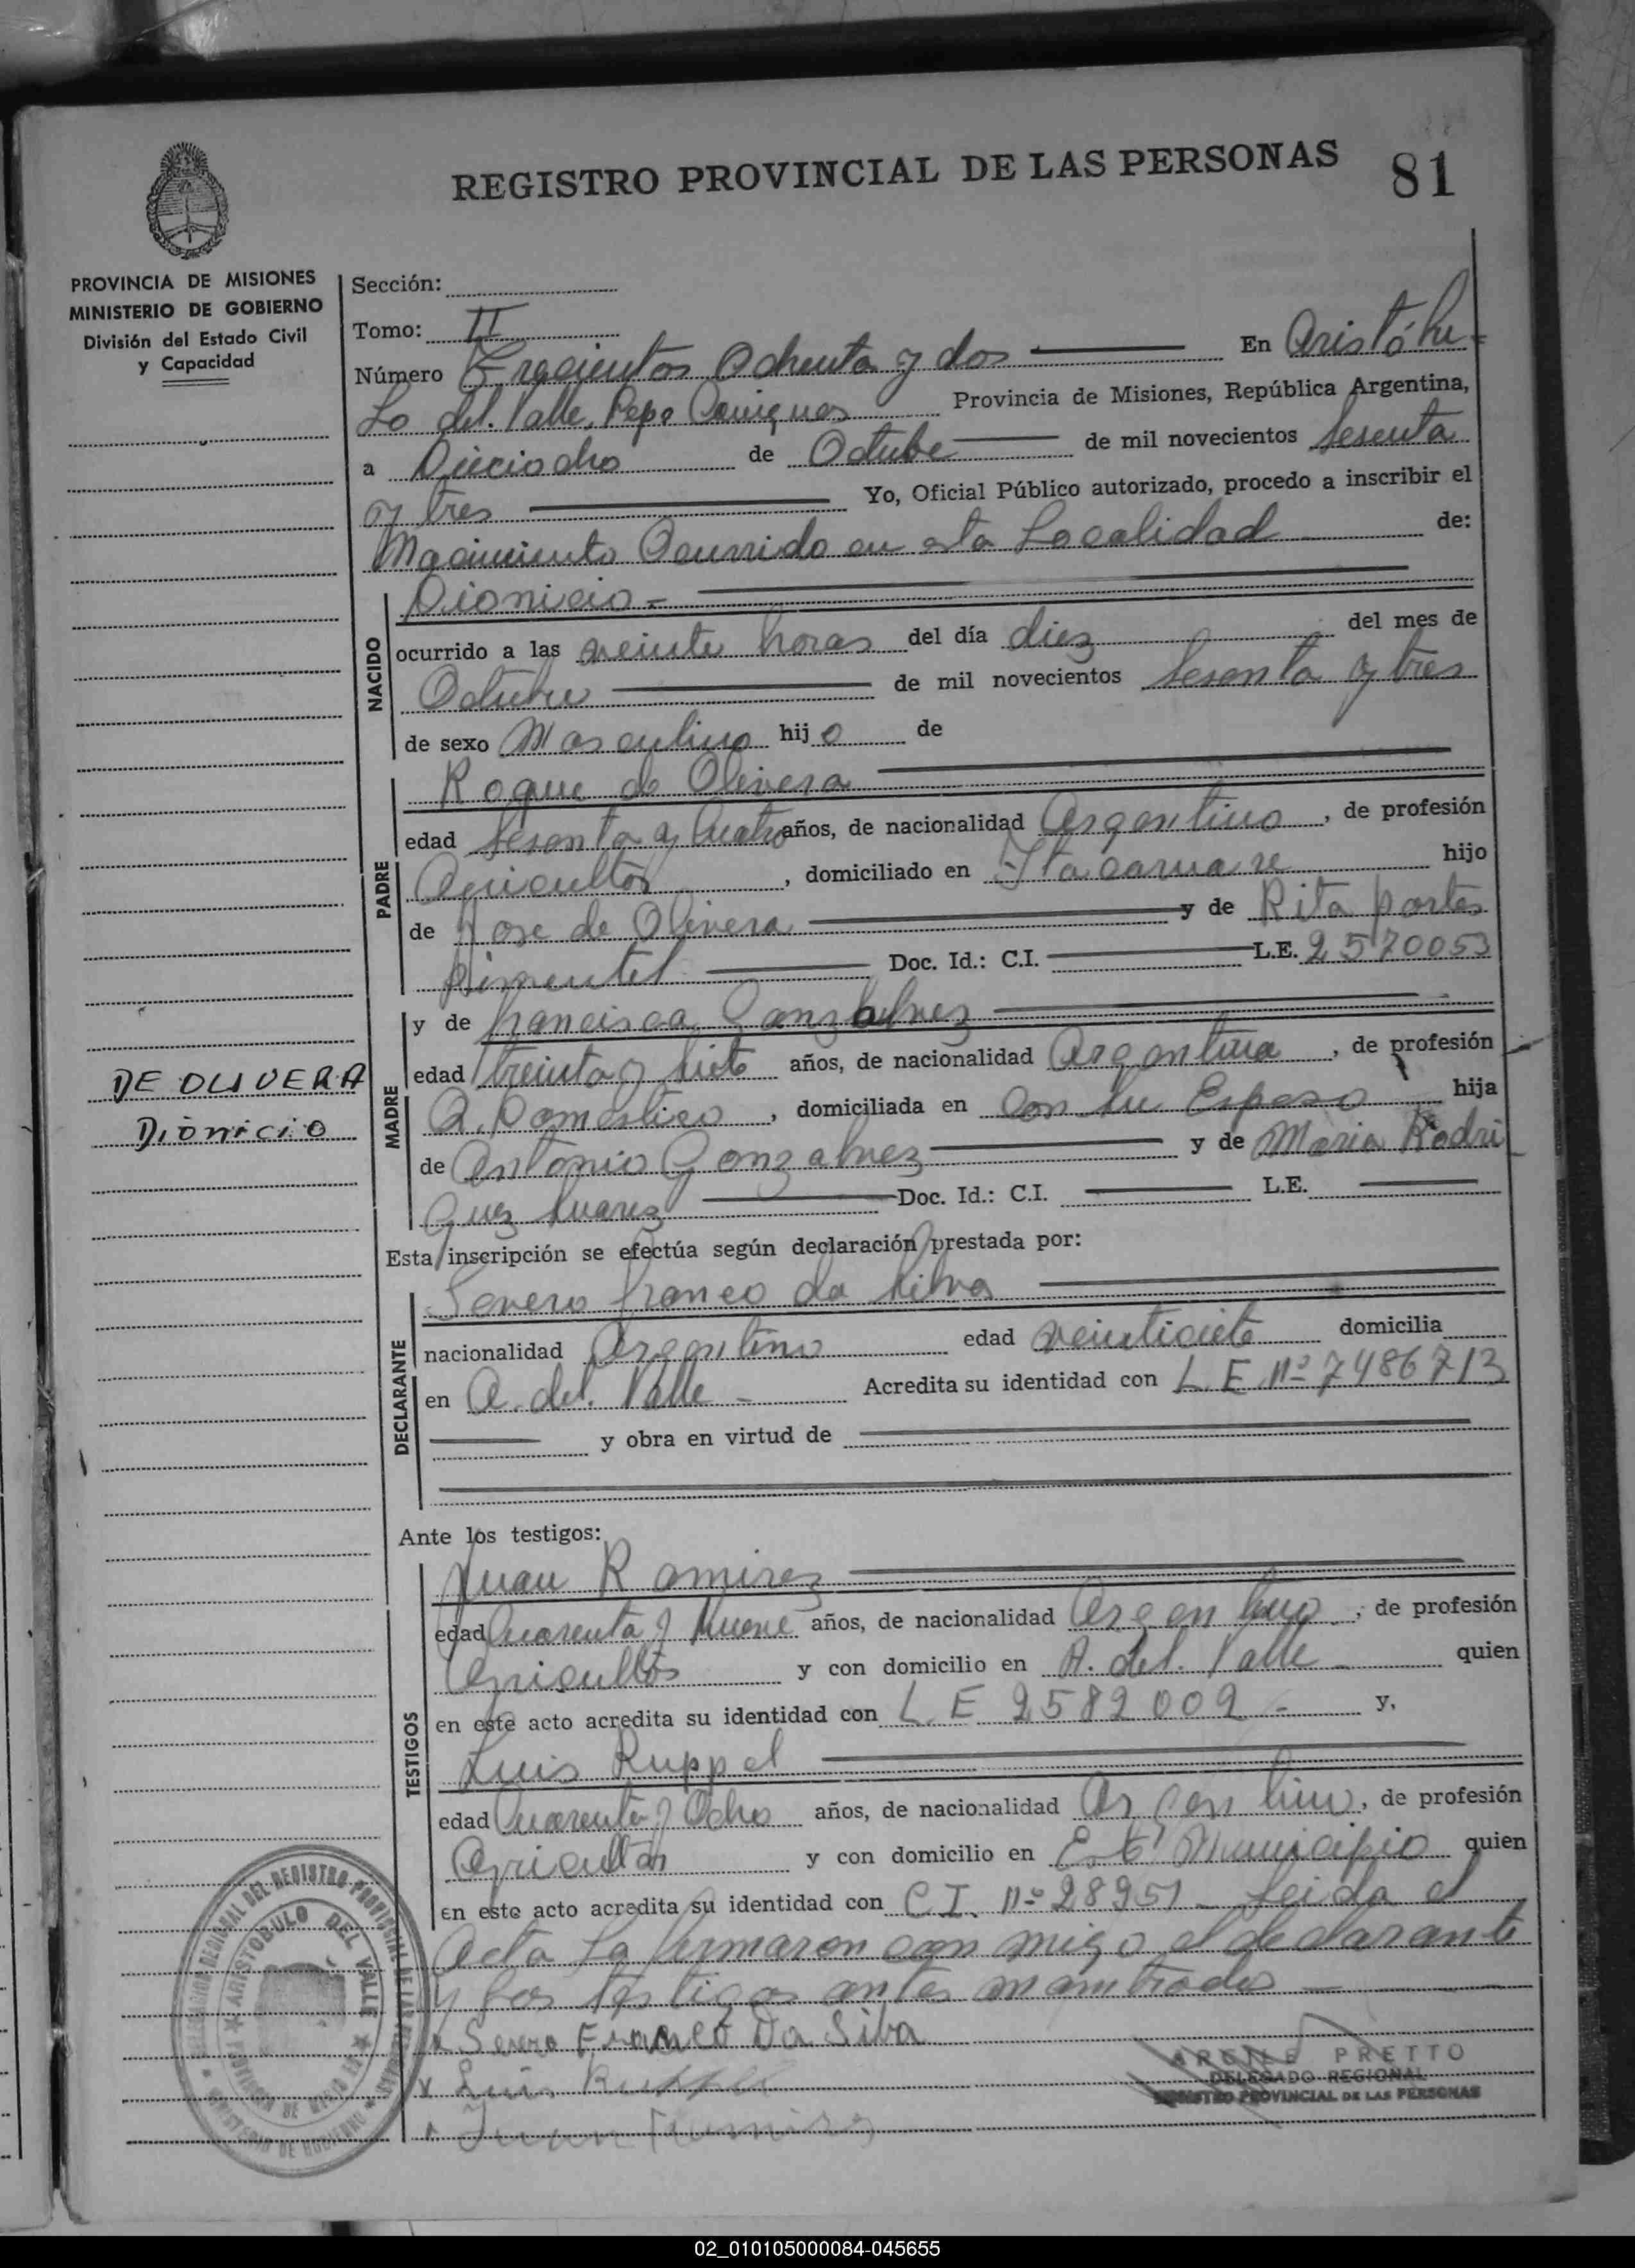 REGISTRO PROVINCIAL DE LAS PERSONAS 81
PROVINCIA DE MISIONES
MINISTERIO DE GOBIERNO
División del Estado Civil
y Capacidad
Sección:
Tomo: II
Número Trecientos Ochenta y dos En Aristóbu-
Lo del Valle, Depo Cainguas Provincia de Misiones, República Argentina,
a Dieciocho de Octubre de mil novecientos Sesenta
y tres Yo, Oficial Público autorizado, procedo a inscribir el
Nacimiento Ocurrido en esta Localidad de:
NACIDO
Dionicio.-
ocurrido a las veinte horas del día diez del mes de
Octubre de mil novecientos Sesenta y tres
de sexo Masculino hijo de
PADRE
Roque de Olivera
edad Sesenta y Cuatro años, de nacionalidad Argentino, de profesión
Agricultor, domiciliado en Itacaruare hijo
de Jose de Olivera y de Rita portes
Pimentel Doc. Id.: C.I. L.E. 2570053
MADRE
y de francisca Gonzalvez
edad treinta y siete años, de nacionalidad Argentina, de profesión
Q. Domestico, domiciliada en Con su Esposo hija
de Antonio Gonzalvez y de Maria Rodri
guez Suarez Doc. Id.: C.I. L.E.
DE OLIVERA
Dionicio
Esta inscripción se efectúa según declaración prestada por:
DECLARANTE
Severo franco da Silva
nacionalidad Argentino edad veintisiete domicilia
en A. del. Valle - Acredita su identidad con L. E. Nº 7486713
y obra en virtud de
Ante los testigos:
TESTIGOS
Juan Ramirez
edad Cuarenta y Nueve años, de nacionalidad Argentino, de profesión
Agricultor y con domicilio en A. del. Valle quien
en este acto acredita su identidad con L. E 2582002 - y,
Luis Ruppel
edad Cuarenta y Ocho años, de nacionalidad Argentino, de profesión
Agricultor y con domicilio en Este Municipio quien
en este acto acredita su identidad con C I. Nº 28951 - Leida el
Acta La firmaron con migo el declarante
y los testigos antes
Severo Franco Da Silva
Luis Ruppel
Juan Ramirez
ARGILE PRETTO
DELEGADO REGIONAL
REGISTRO PROVINCIAL DE LAS PERSONAS
DELEGACION REGIONAL DEL REGISTRO PROVINCIAL DE LAS PERSONAS
ARISTOBULO DEL VALLE
PROVINCIA DE MISIONES
MINISTERIO DE GOBIERNO
02_010105000084-045655